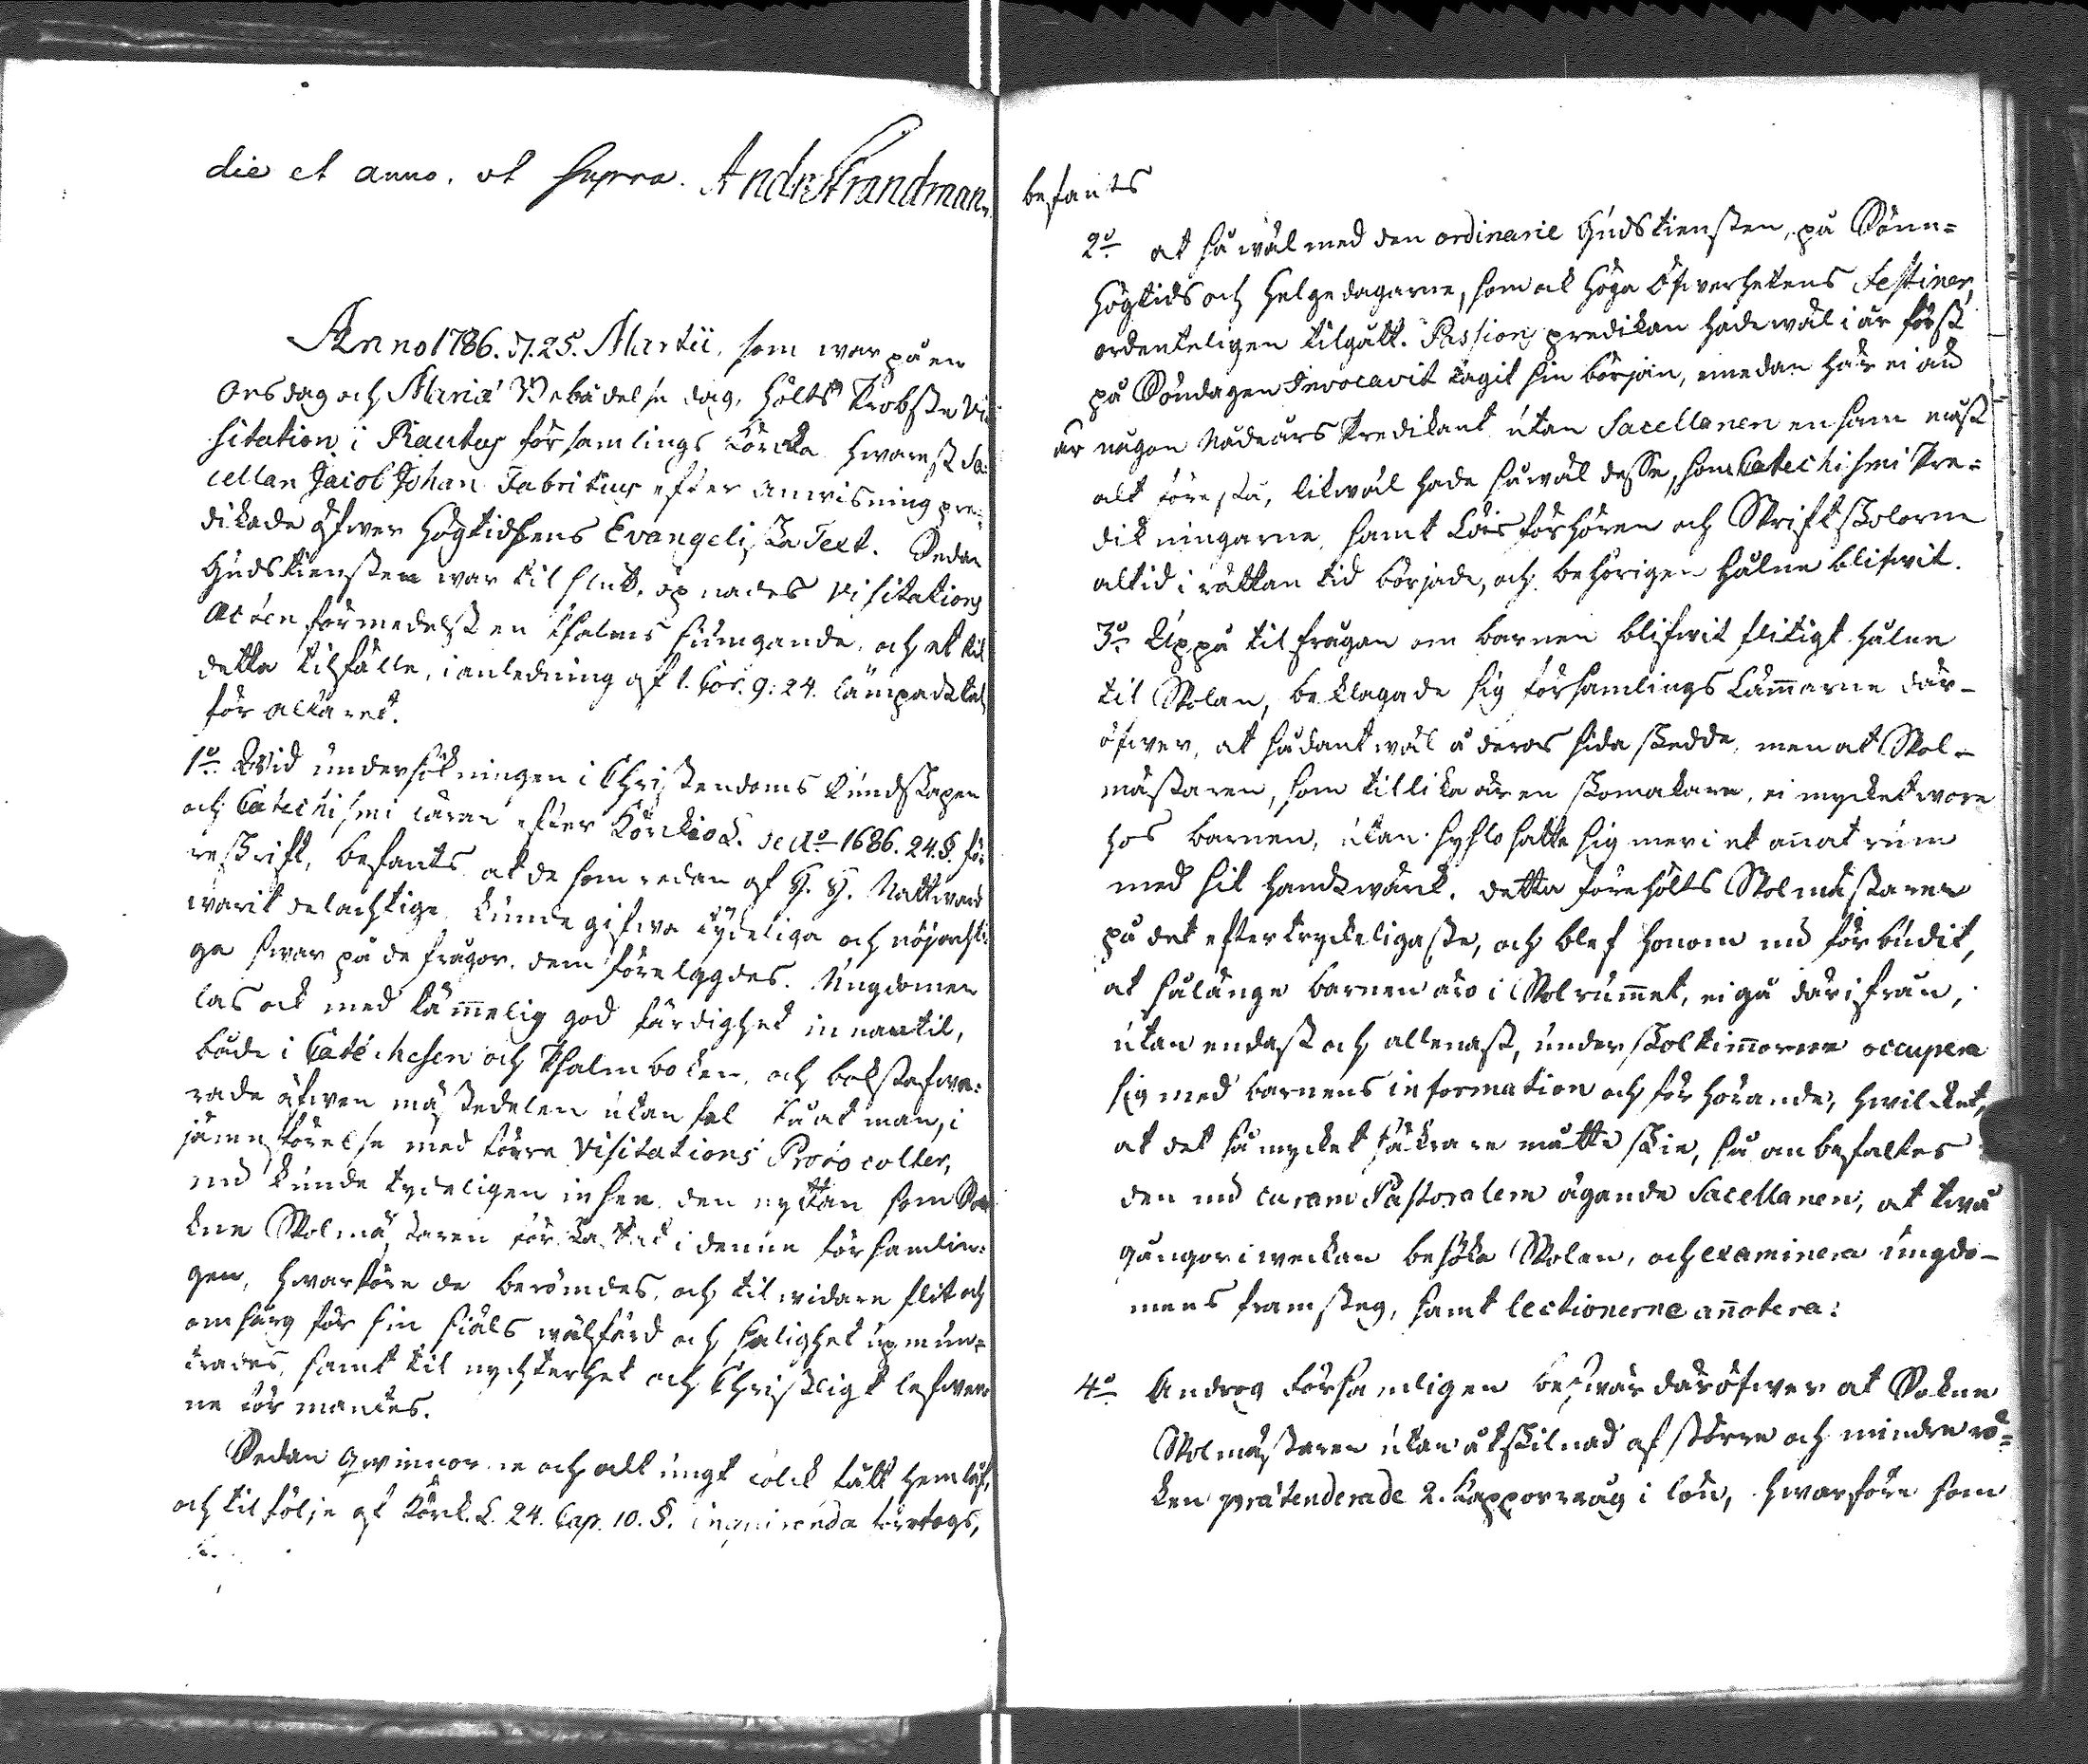 die et anno, ut supra. And: Strandman.
Anno 1786. d. 25. Martii, som war på en
Onsdag och Mariæ Bebådelse dag, hölts Probste Vi
sitation i Rautus församlings kÿrcka hwarest Sa:
cellan Jacob Johan Fabritius efter anwisning pre:
dikade öfwer Högtidsens Evangeliska Text. Sedan
Gudstiensten war til slut, öpnades Visitations
Acten förmedelst en Psalms siungande, och et til
detta tilfälle, i anledning af 1. Cor. 9: 24. lämpadt tal
för altaret.
1o Wid undersökningen i Christendoms kundskapen
och Catechismi läran efter Körckio L. de Ao 1686. 24. §. fö:
reskrift, befants at de som redan af H. H. Nattward
warit delachtige kunde gifwa tydeliga och nöjachti:
ga swar på de frågor, dem förelagdes. Ungdomen
las ock med tämmelig god färdighet innantil,
både i Catechesen och Psalmboken, och bokstafwe:
rade äfwen mästedelen utan fel så at man, i
jämnförelse med förre Visitations Protocoller,
nu kunde tydeligen inse den nyttan som Sok
kne Skolmästaren förskaffat i denne församlin:
gen, hwarföre de berömdes, och til widare flit och
omsorg för sin siäls wälfärd och salighet upmun:
trades, samt til nychterhet och Christligt lefwer
ne förmantes.
Sedan Qwinnorne och alt ungt folck fått hemlof,
och til följe af Körk. L. 24. Cap. 10. §. inquirenda företogs,
befants
2o at så wäl med den ordinarie Gudstiensten, på Sönn=
Högtids och Helgedagarne, som ock Höga Öfwerhetens Festiner,
ordenteligen tilgått. Passions predikan hade wäl i år först
på Söndagen Invocavit tagit sin början, emedan här ei an
är någon Nådeårs Predikant utan Sacellanen ensam måst
alt förestå, likwäl hade så wäl desse, som Catechismi Pre=
dikningarne, samt Läsförhören och Skriftskolorne
altid i rättan tid började, och behörigen hålne blifwit.
3o Uppå tilfrågan om barnen blifwit flitigt hålne
til Skolan, beklagade sig församlings Lämmarne där-
öfwer, at sådant wäl å deras sida skedde, men at Skol-
mästaren, som tillika är en skomakare, ei mycket wore
hos barnen, utan sysslosatte sig mer i et annat rum
med sit handtwärck. Detta förehölts Skolmästaren
på det eftertryckeligaste, och blef honom nu förbudit,
at så länge barnen äro i Skolrummet, ei gå därifrån,
utan endast och allenast, under skoltimmorne occupera
sig med barnens information och förhörande, hwilcket,
at det så mycket säkrare måtte skie, så anbefaltes
den nu curam Pastoralem ägande Sacellanen, at twå
gångor i weckan besöka Skolan, och examinera ungdo-
mens framsteg, samt lectionerne annotera:
4o Androg Församligen beswär däröfwer at Sokne
Skolmästaren utan åtskilnad af större och mindre rö=
ken prætenderade 2. kappor råg i lön, hwarföre som